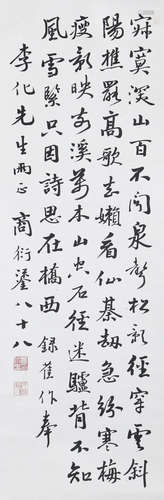 寂寞深山百不聞泉聲松影徑穿雲斜
陽樵罷高歌去嬾看仙棊劫急紛寒梅
瘦影映前溪萬木山空石徑迷驢背不知
風雪緊只因詩思在橋西 錄舊作奉
李化先生兩正 商衍鎏八十八